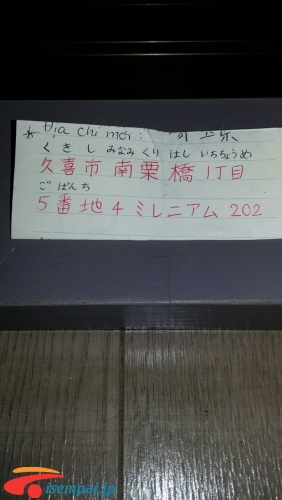 * Địa chỉ mới: 埼玉県
くきし みなみくり はし いちちょうめ
久喜市 南栗橋 1丁目
ごばんち
5番地4 ミレニアム 202
isempai.jp